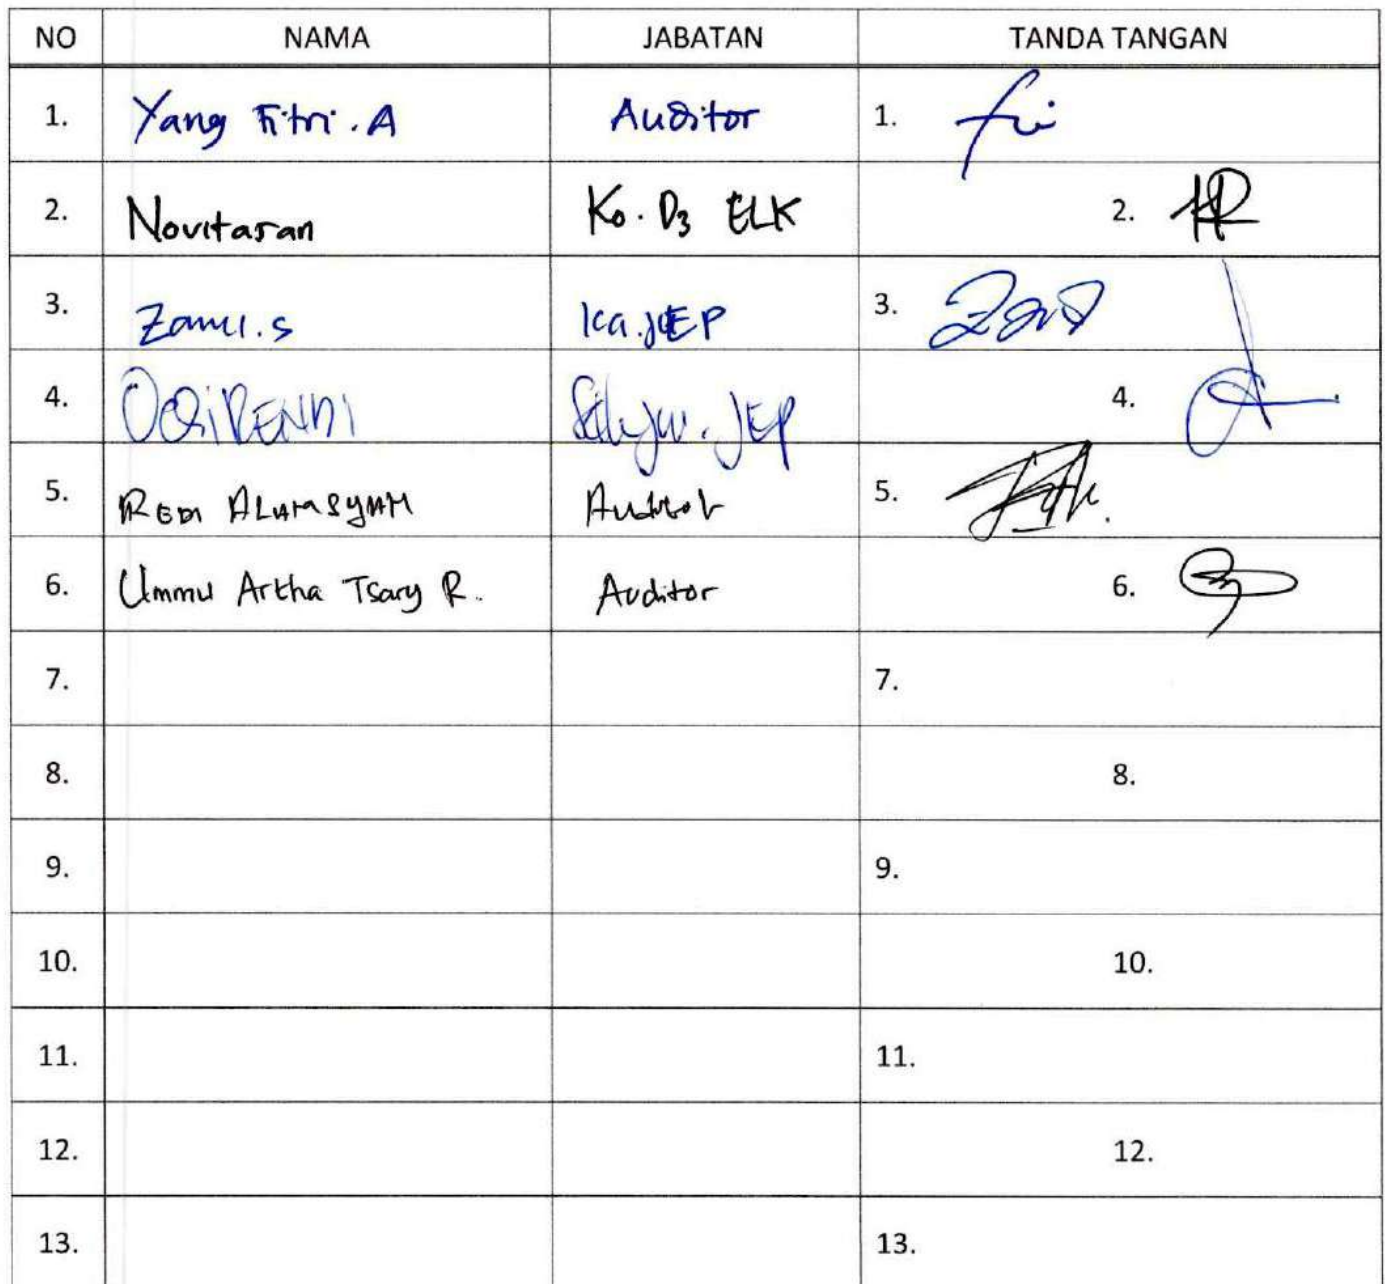 NO NAMA JABATAN TANDA TANGAN
1. Yang Fitri.A Auditor 1.
2. Novitasari Ko. D3 ELK 2.
3. Zamzi.s Ka.JEP 3.
4. 4.
5. Auditor 5.
6. Ummu Artha Tsary R. Auditor 6.
7. 7.
8. 8.
9. 9.
10. 10.
11. 11.
12. 12.
13. 13.